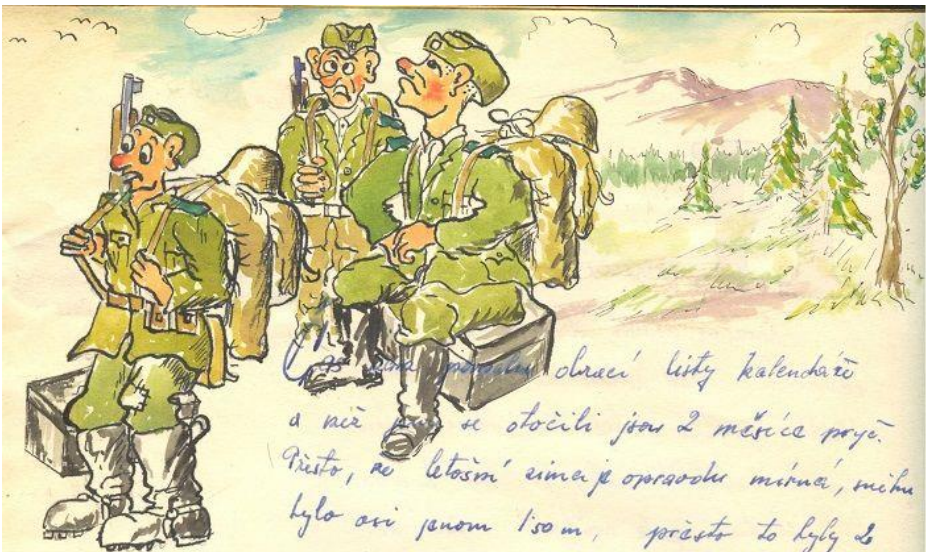 Čas nám pomalu obrací listy kalendáře
a než jsme se otočili jsou 2 měsíce pryč.
Přesto, že letošní zima je opravdu mírná, sněhu
bylo asi jenom 150 m, přesto to byly 2